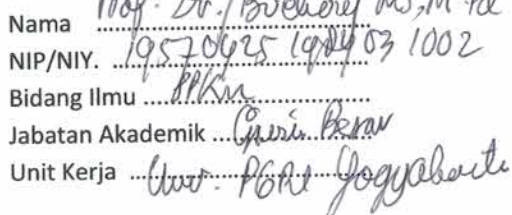 Nama Prof. Dr. Buchory MS, M.Pd
NIP/NIY. 19570425 198403 1002
Bidang Ilmu PPKn
Jabatan Akademik Guru Besar
Unit Kerja Univ. PGRI Yogyakarta